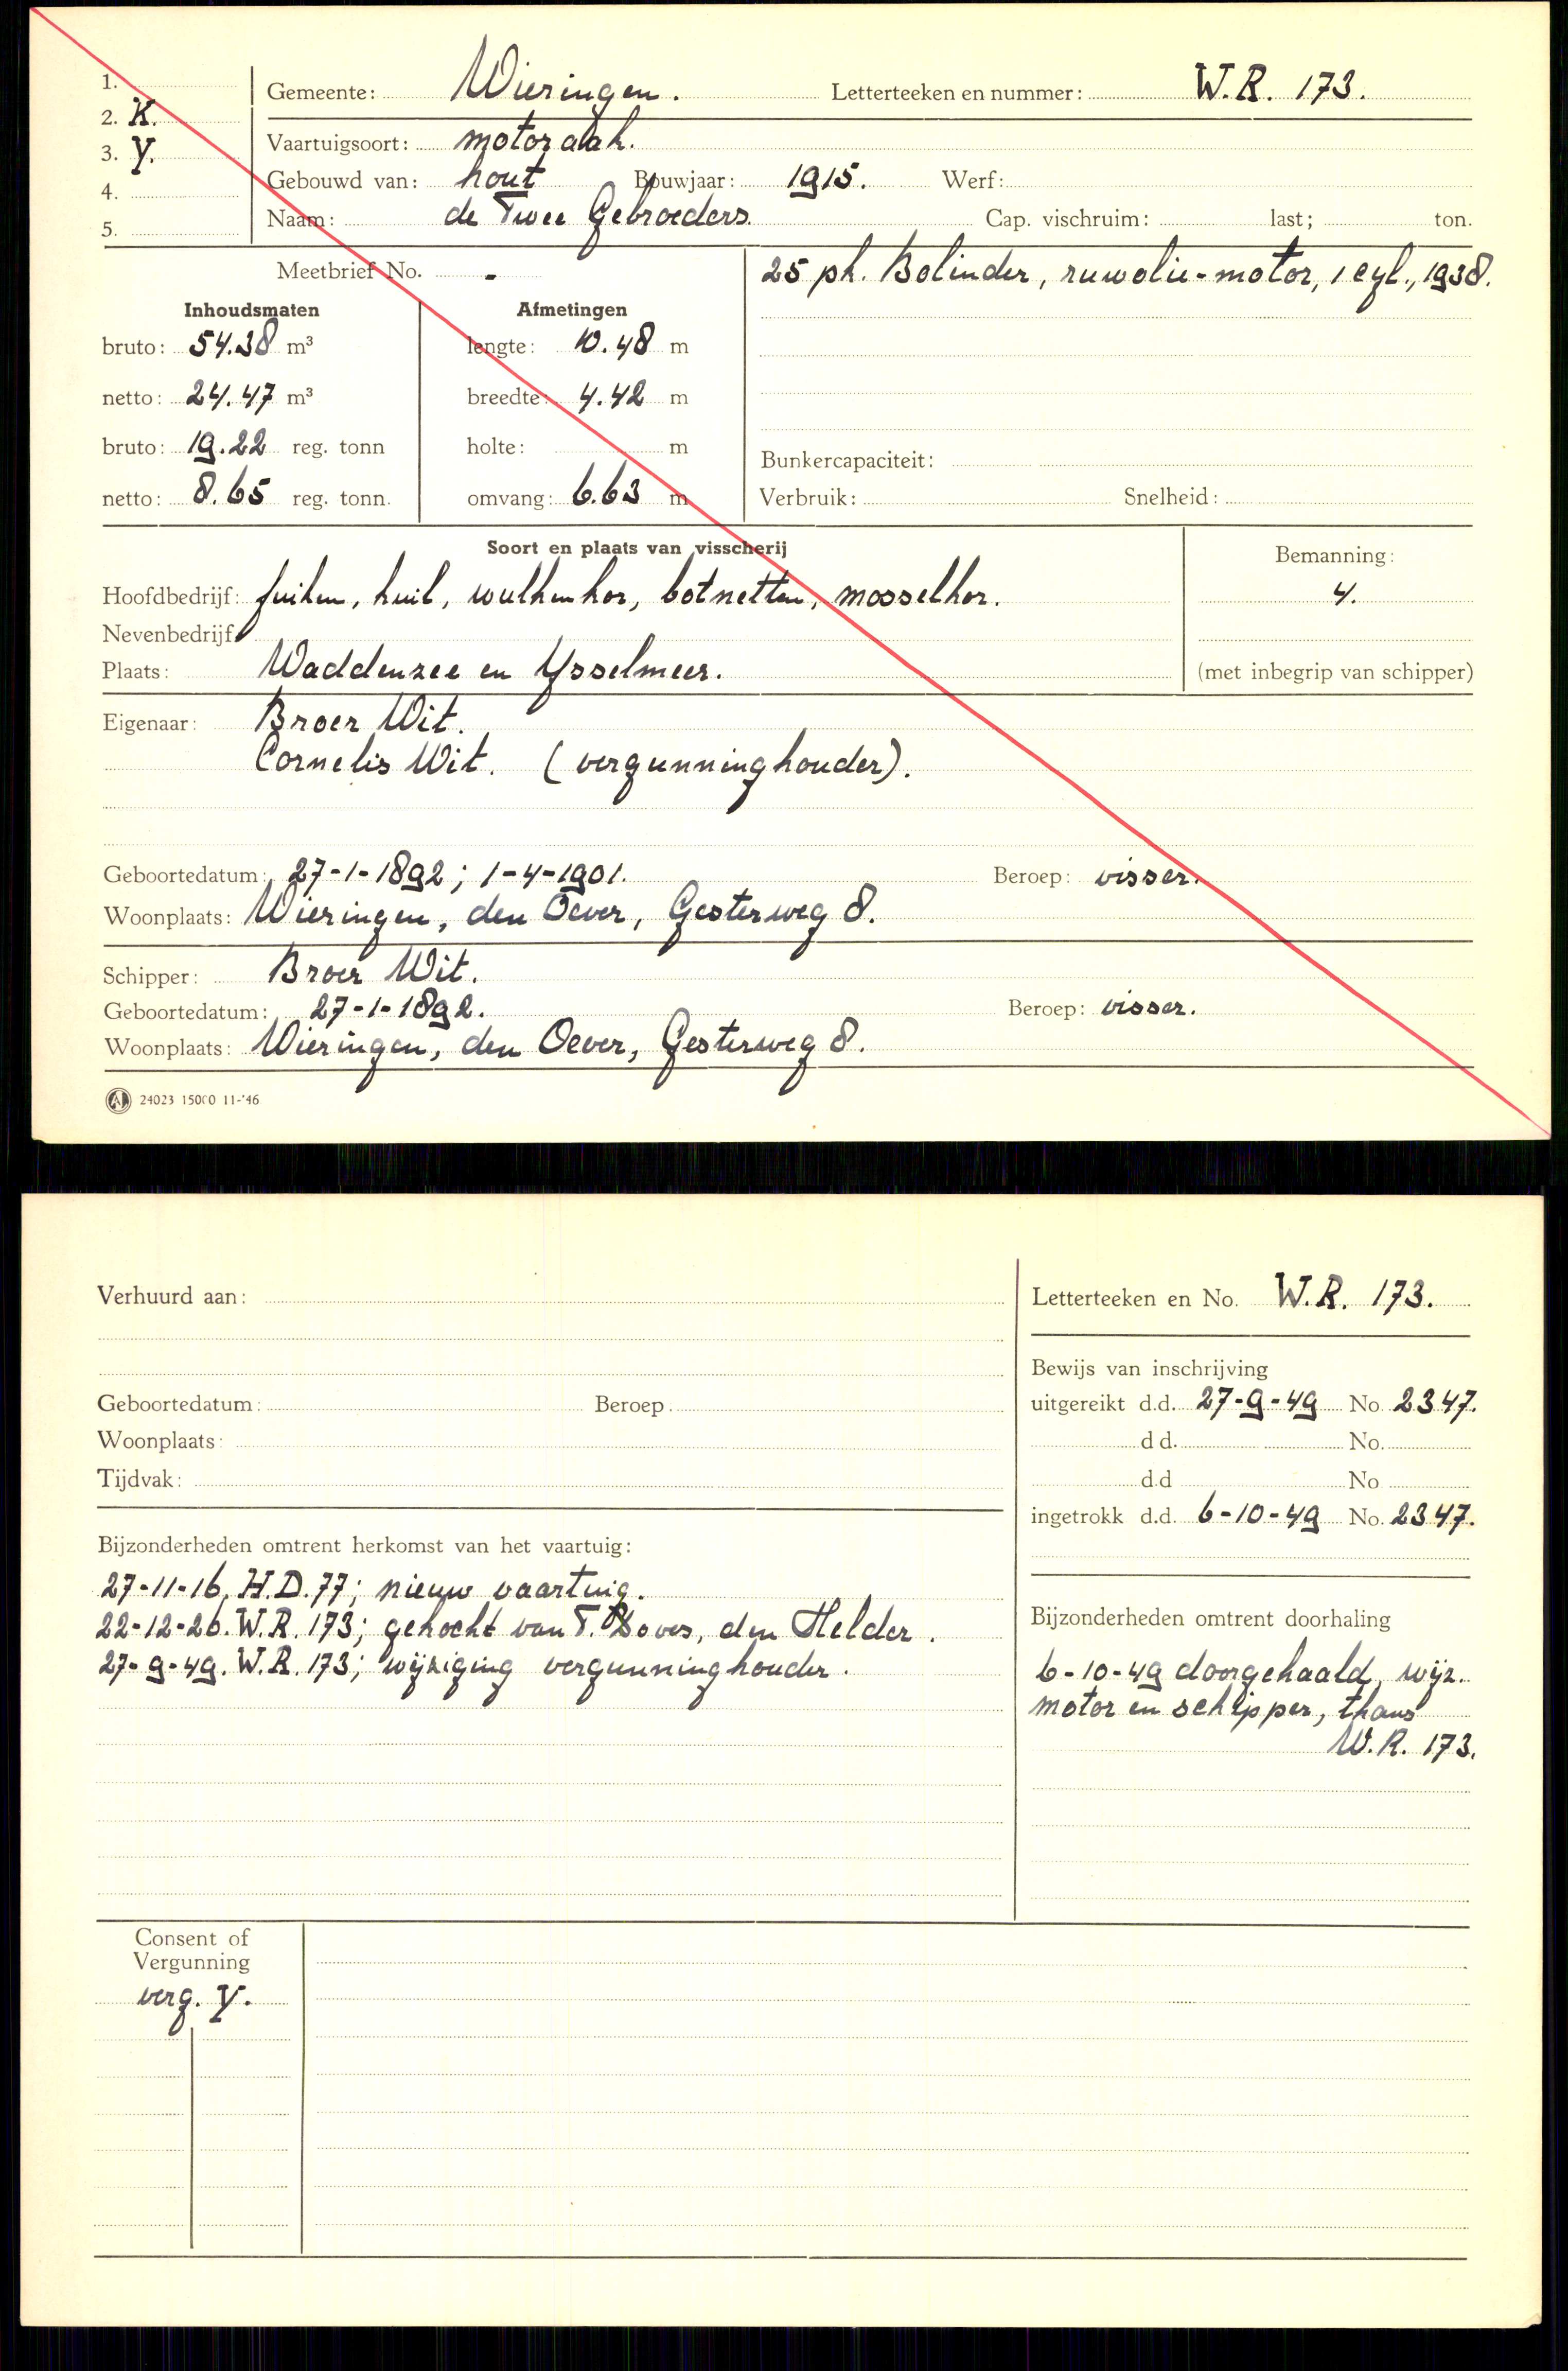 1.
2. K.
3. Y.
4.
5.
Gemeente: Wieringen. Letterteeken en nummer: W.R. 173.
Vaartuigsoort: motoraak.
Gebouwd van: hout Bouwjaar: 1915. Werf:
Naam: de Twee Gebroeders. Cap. vischruim: last; ton.
Meetbrief No. -
Inhoudsmaten
bruto: 54.38 m³
netto: 24.47 m³
bruto: 19.22 reg. tonn
netto: 8.65 reg. tonn.
Afmetingen
lengte: 10.48 m
breedte: 4.42 m
holte: m
omvang: 6.63 m
25 pk. Bolinder, ruwolie-motor, 1 cyl., 1938.
Bunkercapaciteit:
Verbruik: Snelheid:
Soort en plaats van visscherij
Hoofdbedrijf: fuiken, kuil, wulkenkor, botnetten, mosselkor.
Nevenbedrijf
Plaats: Waddenzee en Ysselmeer.
Bemanning:
4.
(met inbegrip van schipper)
Eigenaar: Broer Wit.
Cornelis Wit. (vergunninghouder).
Geboortedatum: 27-1-1892; 1-4-1901. Beroep: visser.
Woonplaats: Wieringen, den Oever, Gesterweg 8.
Schipper: Broer Wit.
Geboortedatum: 27-1-1892. Beroep: visser.
Woonplaats: Wieringen, den Oever, Gesterweg 8.
A 24023 15000 11-'46
Verhuurd aan:
Geboortedatum: Beroep.
Woonplaats:
Tijdvak:
Bijzonderheden omtrent herkomst van het vaartuig:
27-11-16. H.D. 77; nieuw vaartuig.
22-12-26. W.R. 173; gekocht van T. den Helder.
27-9-49. W.R. 173; wijziging vergunninghouder.
Letterteeken en No. W.R. 173.
Bewijs van inschrijving
uitgereikt d.d. 27-9-49 No 2347.
d d. No.
d.d No
ingetrokk d.d. 6-10-49 No. 2347.
Bijzonderheden omtrent doorhaling
6-10-49 doorgehaald, wijz.
motor en schipper, thans
W.R. 173.
Consent of
Vergunning
verg. Y.